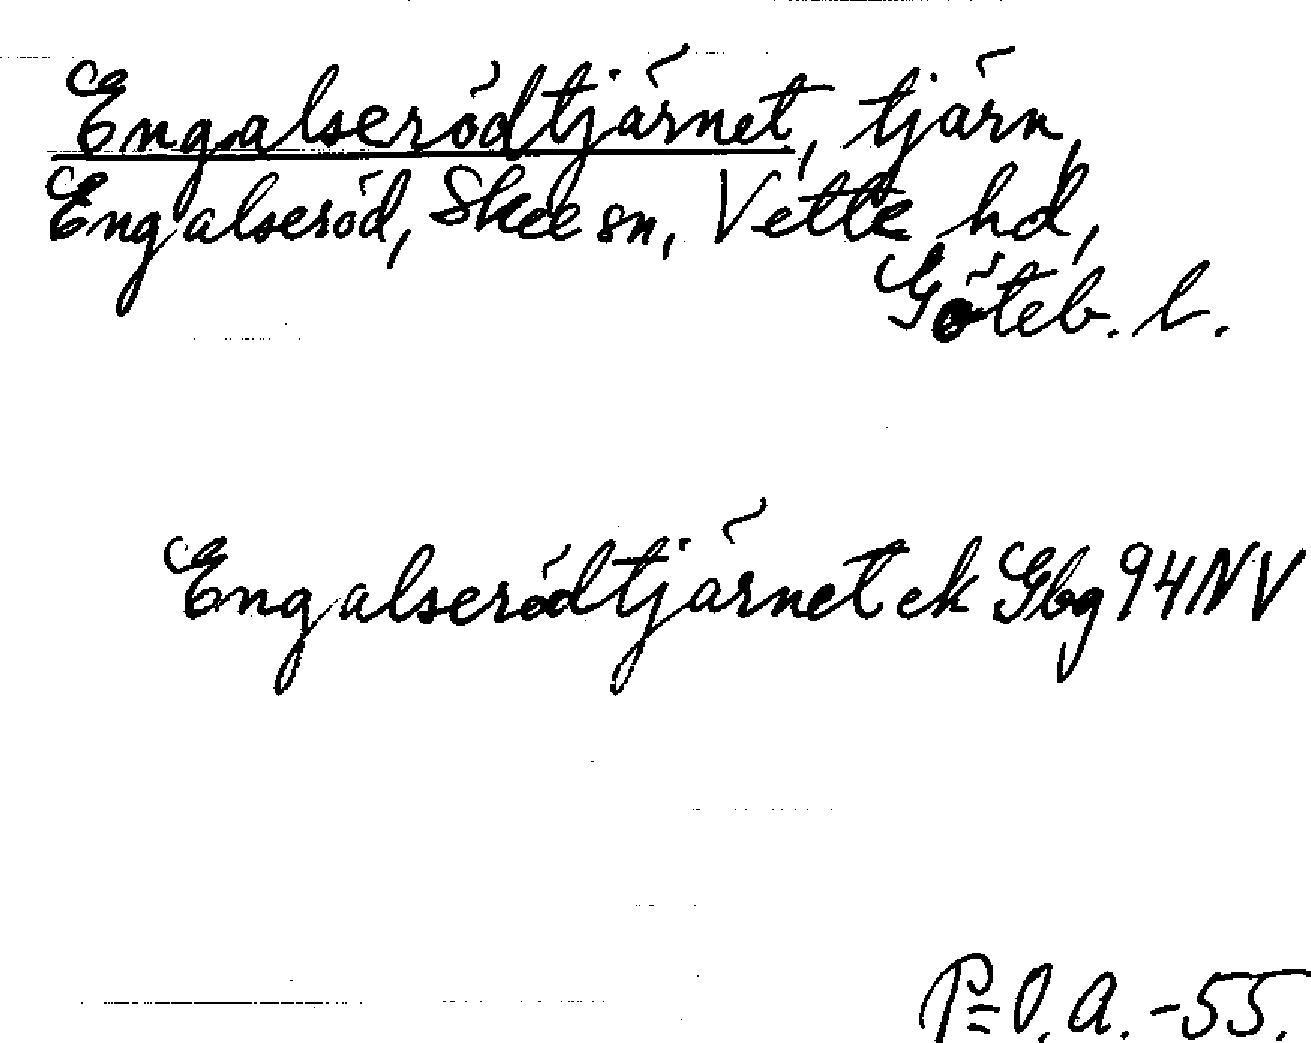 Engalserödtjärnet, tjärn,
Engalseröd, Skee sn, Vette hd,
Göteb. l.
Engalserödtjärnet ek Gbg 94 NV
P=O. A. -55.